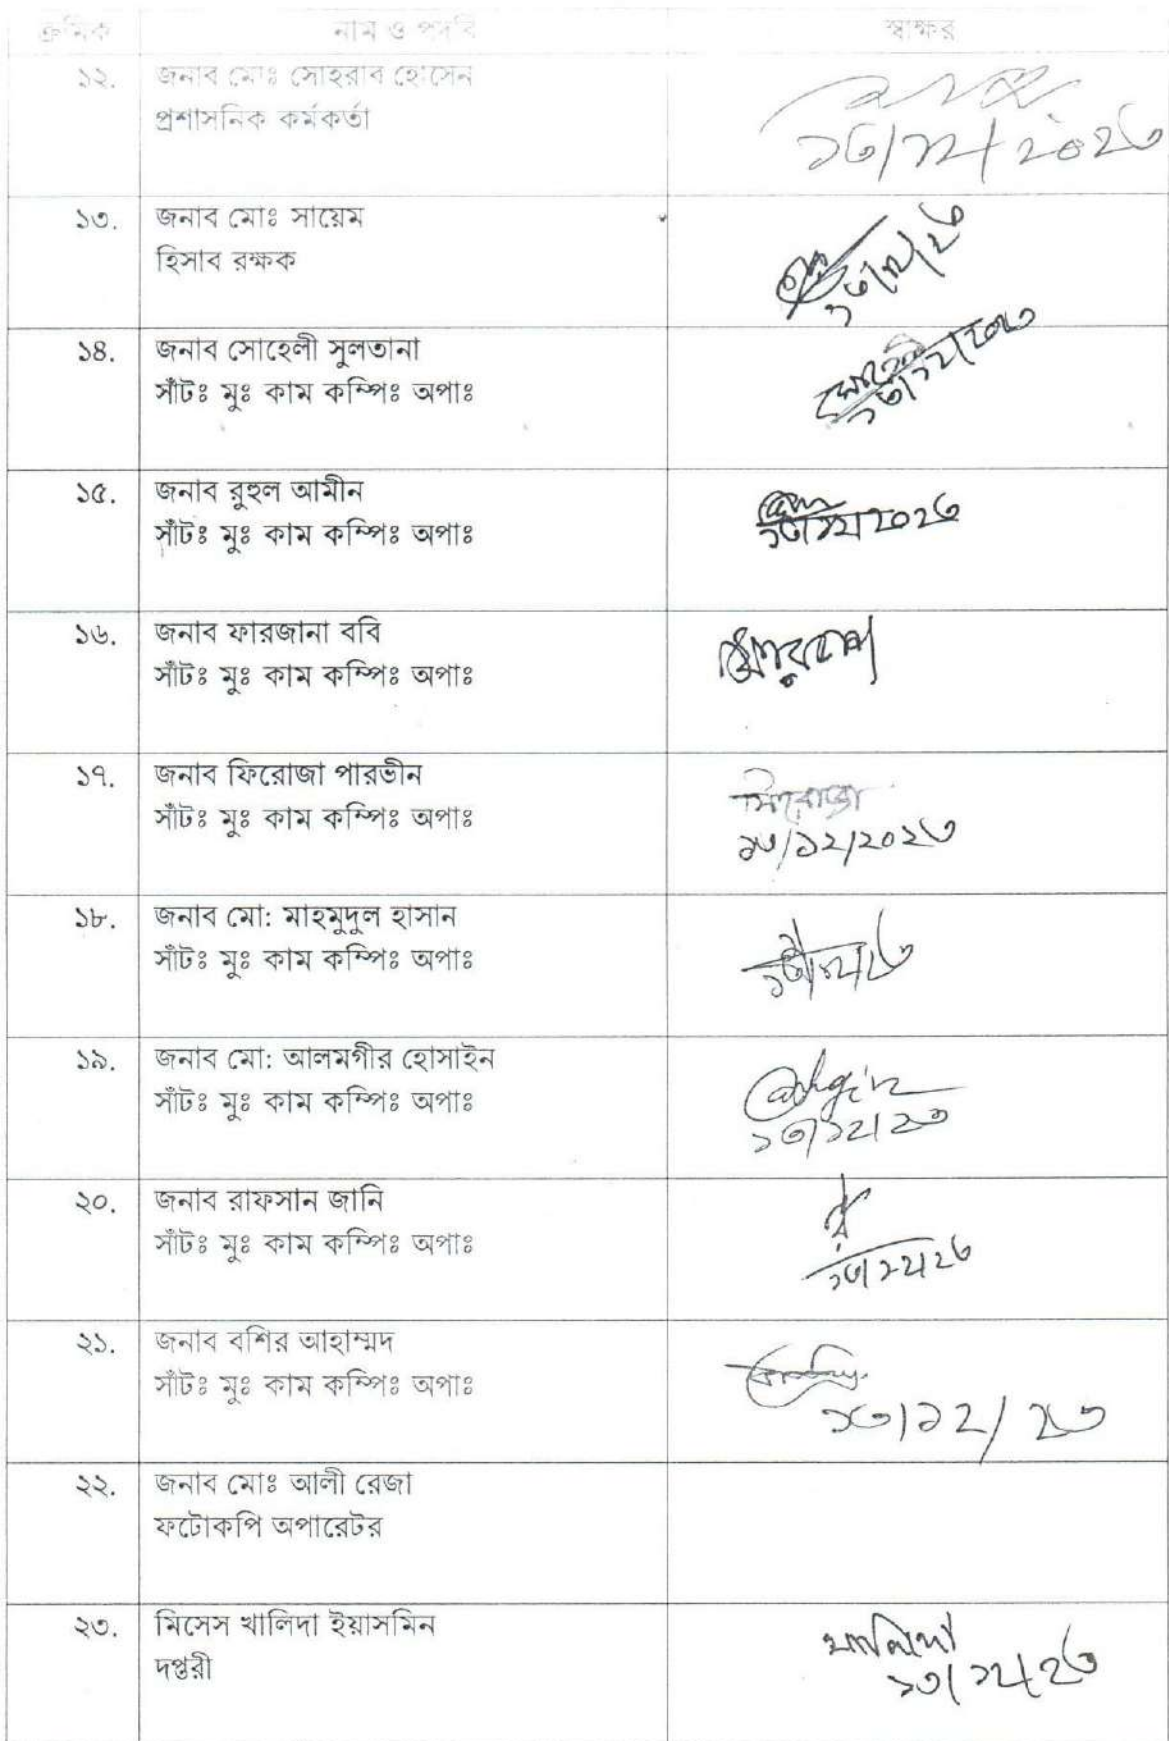 ক্রমিক নাম ও পদবি স্বাক্ষর
১২. জনাব মোঃ সোহরাব হোসেন
প্রশাসনিক কর্মকর্তা
১৩/১২/২০২৩
১৩. জনাব মোঃ সায়েম
হিসাব রক্ষক
১৩/১২/২৩
১৪. জনাব সোহেলী সুলতানা
সাঁটঃ মুঃ কাম কম্পিঃ অপাঃ
১৩/১২/২০২৩
১৫. জনাব রুহুল আমীন
সাঁটঃ মুঃ কাম কম্পিঃ অপাঃ
১৩/১২/২০২৩
১৬. জনাব ফারজানা ববি
সাঁটঃ মুঃ কাম কম্পিঃ অপাঃ
১৭. জনাব ফিরোজা পারভীন
সাঁটঃ মুঃ কাম কম্পিঃ অপাঃ
ফিরোজা
১৩/১২/২০২৩
১৮. জনাব মো: মাহমুদুল হাসান
সাঁটঃ মুঃ কাম কম্পিঃ অপাঃ
১৩/১২/২৩
১৯. জনাব মো: আলমগীর হোসাইন
সাঁটঃ মুঃ কাম কম্পিঃ অপাঃ
১৩/১২/২৩
২০. জনাব রাফসান জানি
সাঁটঃ মুঃ কাম কম্পিঃ অপাঃ
১৩/১২/২৩
২১. জনাব বশির আহাম্মদ
সাঁটঃ মুঃ কাম কম্পিঃ অপাঃ
১৩/১২/২৩
২২. জনাব মোঃ আলী রেজা
ফটোকপি অপারেটর
২৩. মিসেস খালিদা ইয়াসমিন
দপ্তরী
খালিদা
১৩/১২/২৩